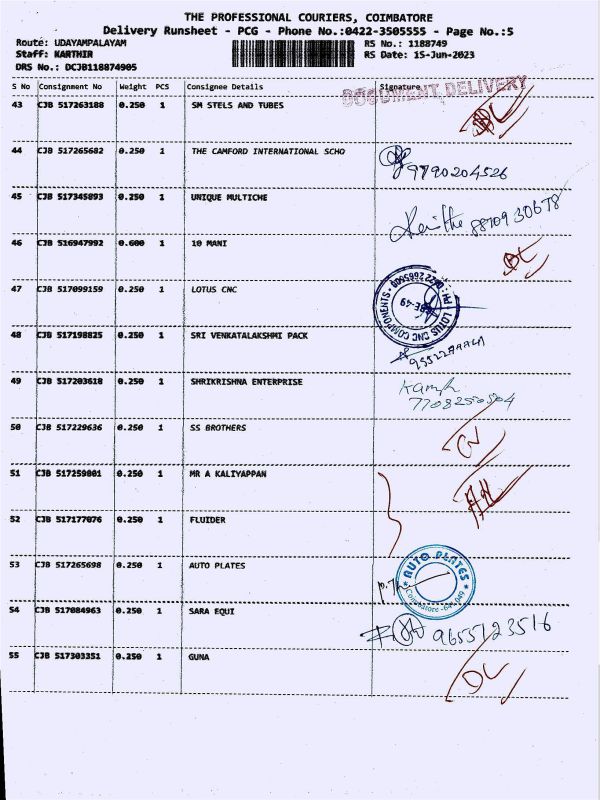 THE PROFESSIONAL COURIERS, COIMBATORE
Delivery Runsheet - PCG - Phone No.:0422-3505555 - Page No.:5
Route: UDAYAMPALAYAM RS No.: 1188749
Staff: KARTHIR RS Date: 15-Jun-2023
DRS No.: DCJB118874905
S No Consignment No Weight PCS Consignee Details Signature
DOCUMENT DELIVERY
43 CJB 517263188 0.250 1 SM STELS AND TUBES
44 CJB 517265682 0.250 1 THE CAMFORD INTERNATIONAL SCHO
9790204526
45 CJB 517345893 0.250 1 UNIQUE MULTICHE
8870930678
46 CJB 516947992 0.600 1 10 MANI
47 CJB 517099159 0.250 1 LOTUS CNC
LOTUS CNC COMPONENTS
48 CJB 517198825 0.250 1 SRI VENKATALAKSHMI PACK
49 CJB 517203618 0.250 1 SHRIKRISHNA ENTERPRISE
7708250504
50 CJB 517229636 0.250 1 SS BROTHERS
51 CJB 517259801 0.250 1 MR A KALIYAPPAN
52 CJB 517177076 0.250 1 FLUIDER
53 CJB 517265698 0.250 1 AUTO PLATES
AUTO PLATES
54 CJB 517084963 0.250 1 SARA EQUI
9655123516
55 CJB 517303351 0.250 1 GUNA